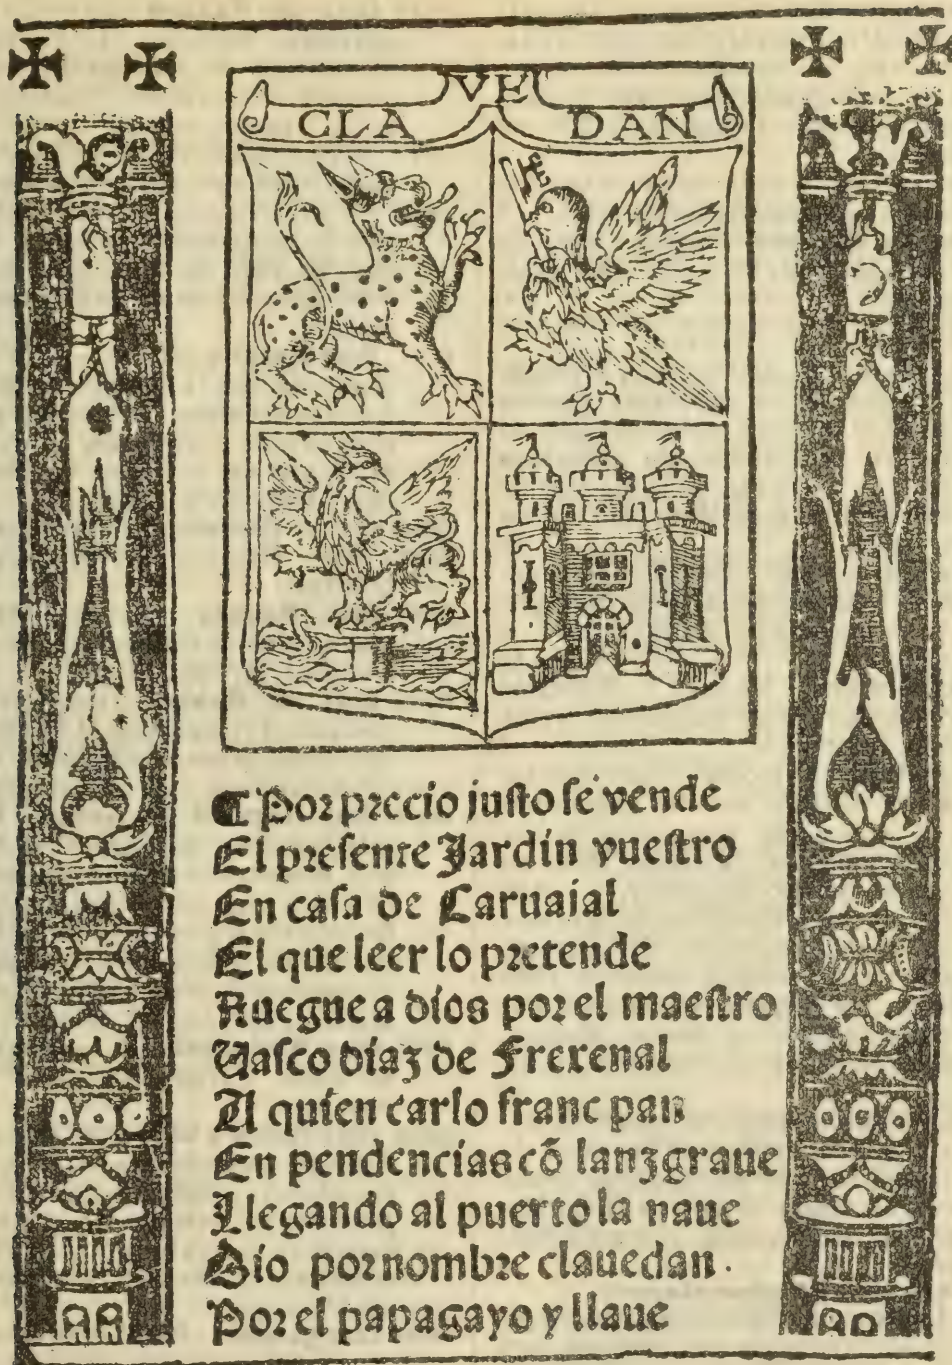 VE
CLA DAN
¶ Por precio justo se vende
El presente Jardin vuestro
En casa de Caruajal
El que leer lo pretende
Ruegue a dios por el maestro
Uasco diaz de Frexenal
A quien carlo franc pan
En pendencias cõ lanzgraue
Llegando al puerto la naue
Dio por nombre clauedan.
Por el papagayo y llaue